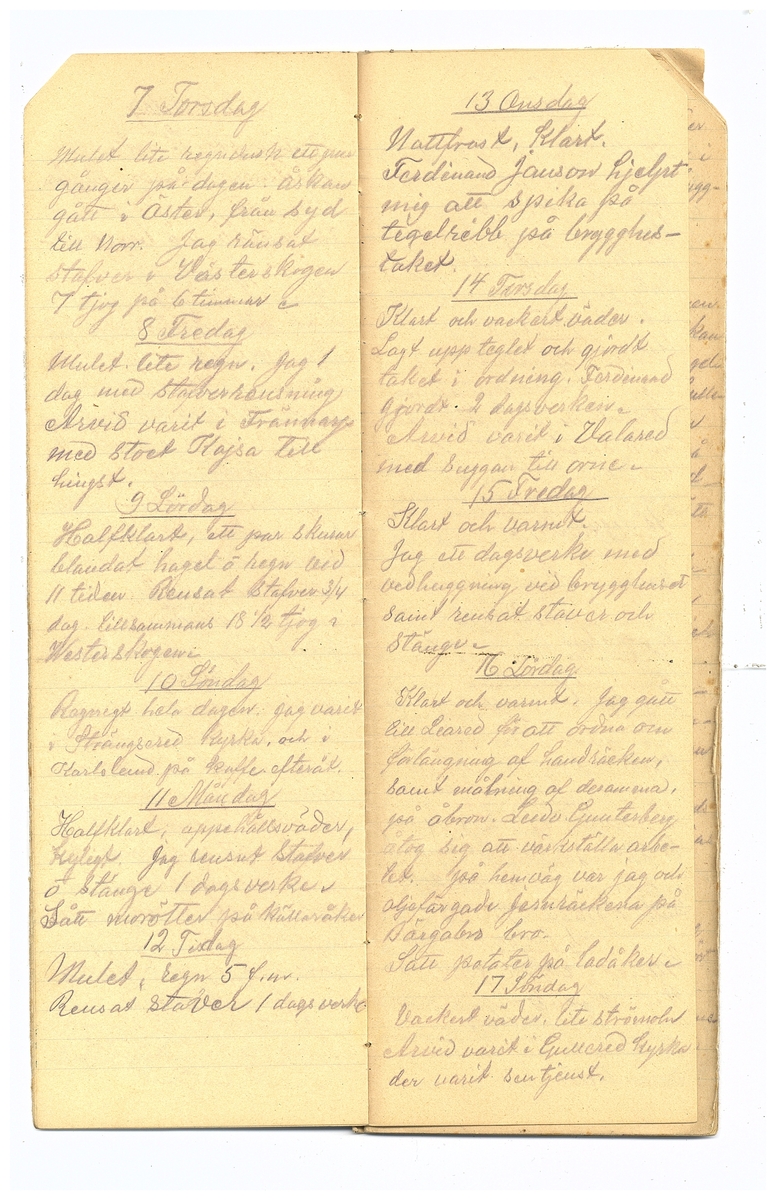 7 Torsdag
Mulet lite regndusk ett par
gånger på dagen. Åskan
gått i Öster, från Syd
till Norr. Jag ränsat
stafver i Västerskogen
7 tjog på 6 timmar
8 Fredag
Mulet. lite regn. Jag 1
dag med stafverrensning
Arvid varit i Trännarp
med Stoet Kajsa till
hingst.
9 Lördag
Halfklart, ett par skurar
blandat hagel o regn vid
11 tiden. Rensat Stafver 3/4
dag. tillsammans 18 1/2 tjog i
Westerskogen
10 Söndag
Regnigt hela dagen. jag varit
i Strängsered Kyrka, och i
Karlslund på kaffe efteråt.
11 Måndag
Halfklart, uppehållsväder,
kyligt. Jag rensat Stafver
o stänge 1 dagsverke
Sått morötter på Källaråker
12 Tisdag
Mulet, regn 5 f.m.
Rensat staver 1 dagsverke
13 Onsdag
Nattfrost, Klart.
Ferdinand Janson hjelpt
mig att spika på
tegelribb på brygghus-
taket.
14 Torsdag
Klart och vackert väder.
Lagt upp teglet och gjordt
taket i ordning. Ferdinand
gjordt 2 dagsverken
Arvid varit i Valared
med suggan till orne
15 Fredag
Klart och varmt.
Jag ett dagsverke med
vedhuggning vid brygghuset
samt rensat staver och
stänge
16 Lördag
Klart och varmt. Jag gått
till Liared för att ordna om
förlängning af handräcken,
samt målning af desamma,
på åbron. Gunterberg
åtog sig att värkställa arbe-
tet. på hemväg var jag och
oljefärgade järnräckena på
bro.
Satt potater på ladåker
17 Söndag
Vackert väder. lite strömoln
Arvid varit i Gullered kyrka
der varit sen tjenst.